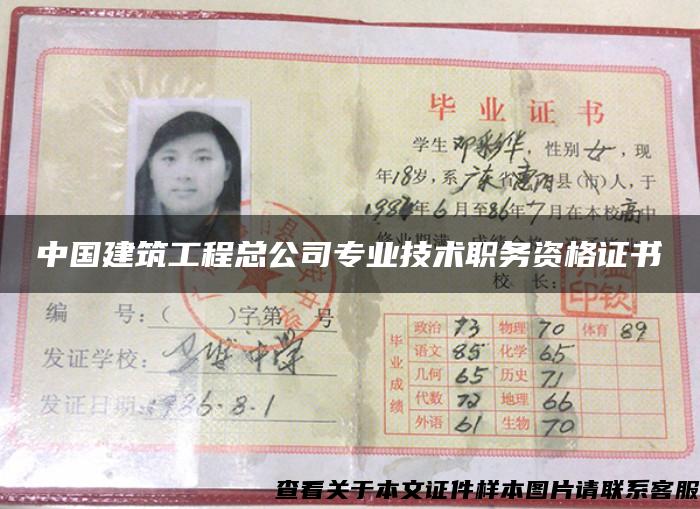 毕业证书
学生邓彩华，性别女，现
年18岁，系广东省惠阳县（市）人，于
1984年6月至86年7月在本校高中
中国建筑工程总公司专业技术职务资格证书
校 长：
编 号：（ ）字第 号
发证学校：
中学
发证日期：1986.8.1
毕业成绩
政治 73 物理 70 体育 89
语文 85 化学 65
几何 65 历史 71
代数 72 地理 66
外语 61 生物 70
查看关于本文证件样本图片请联系客服